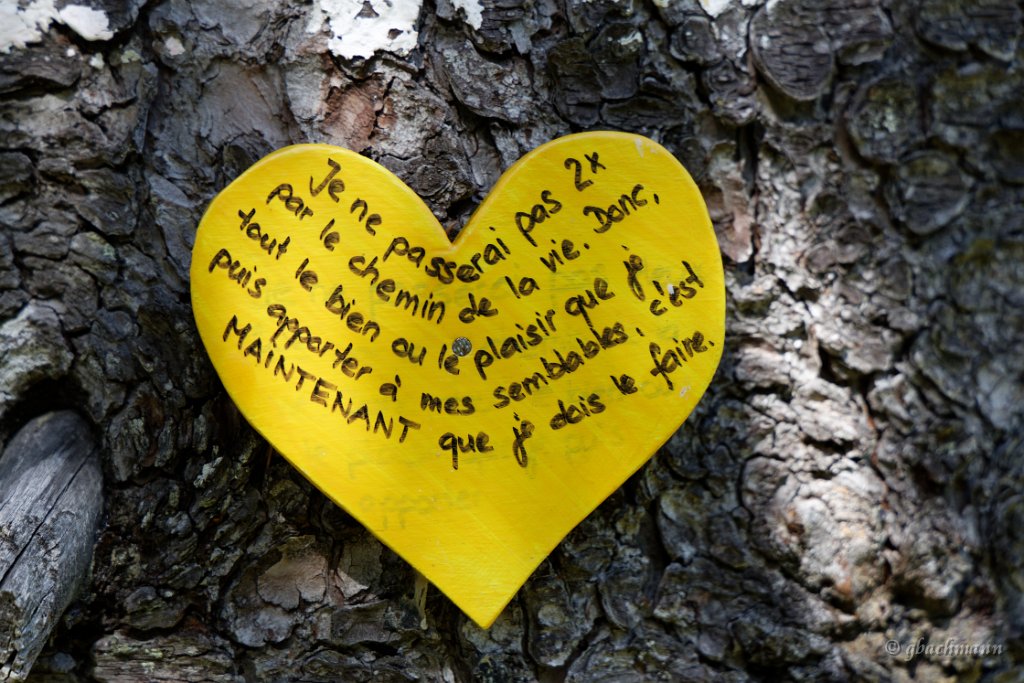 Je ne passerai pas 2x
par le chemin de la vie. Donc,
tout le bien ou le plaisir que je
puis apporter à mes semblables, c'est
MAINTENANT que je dois le faire.
© gbachmann